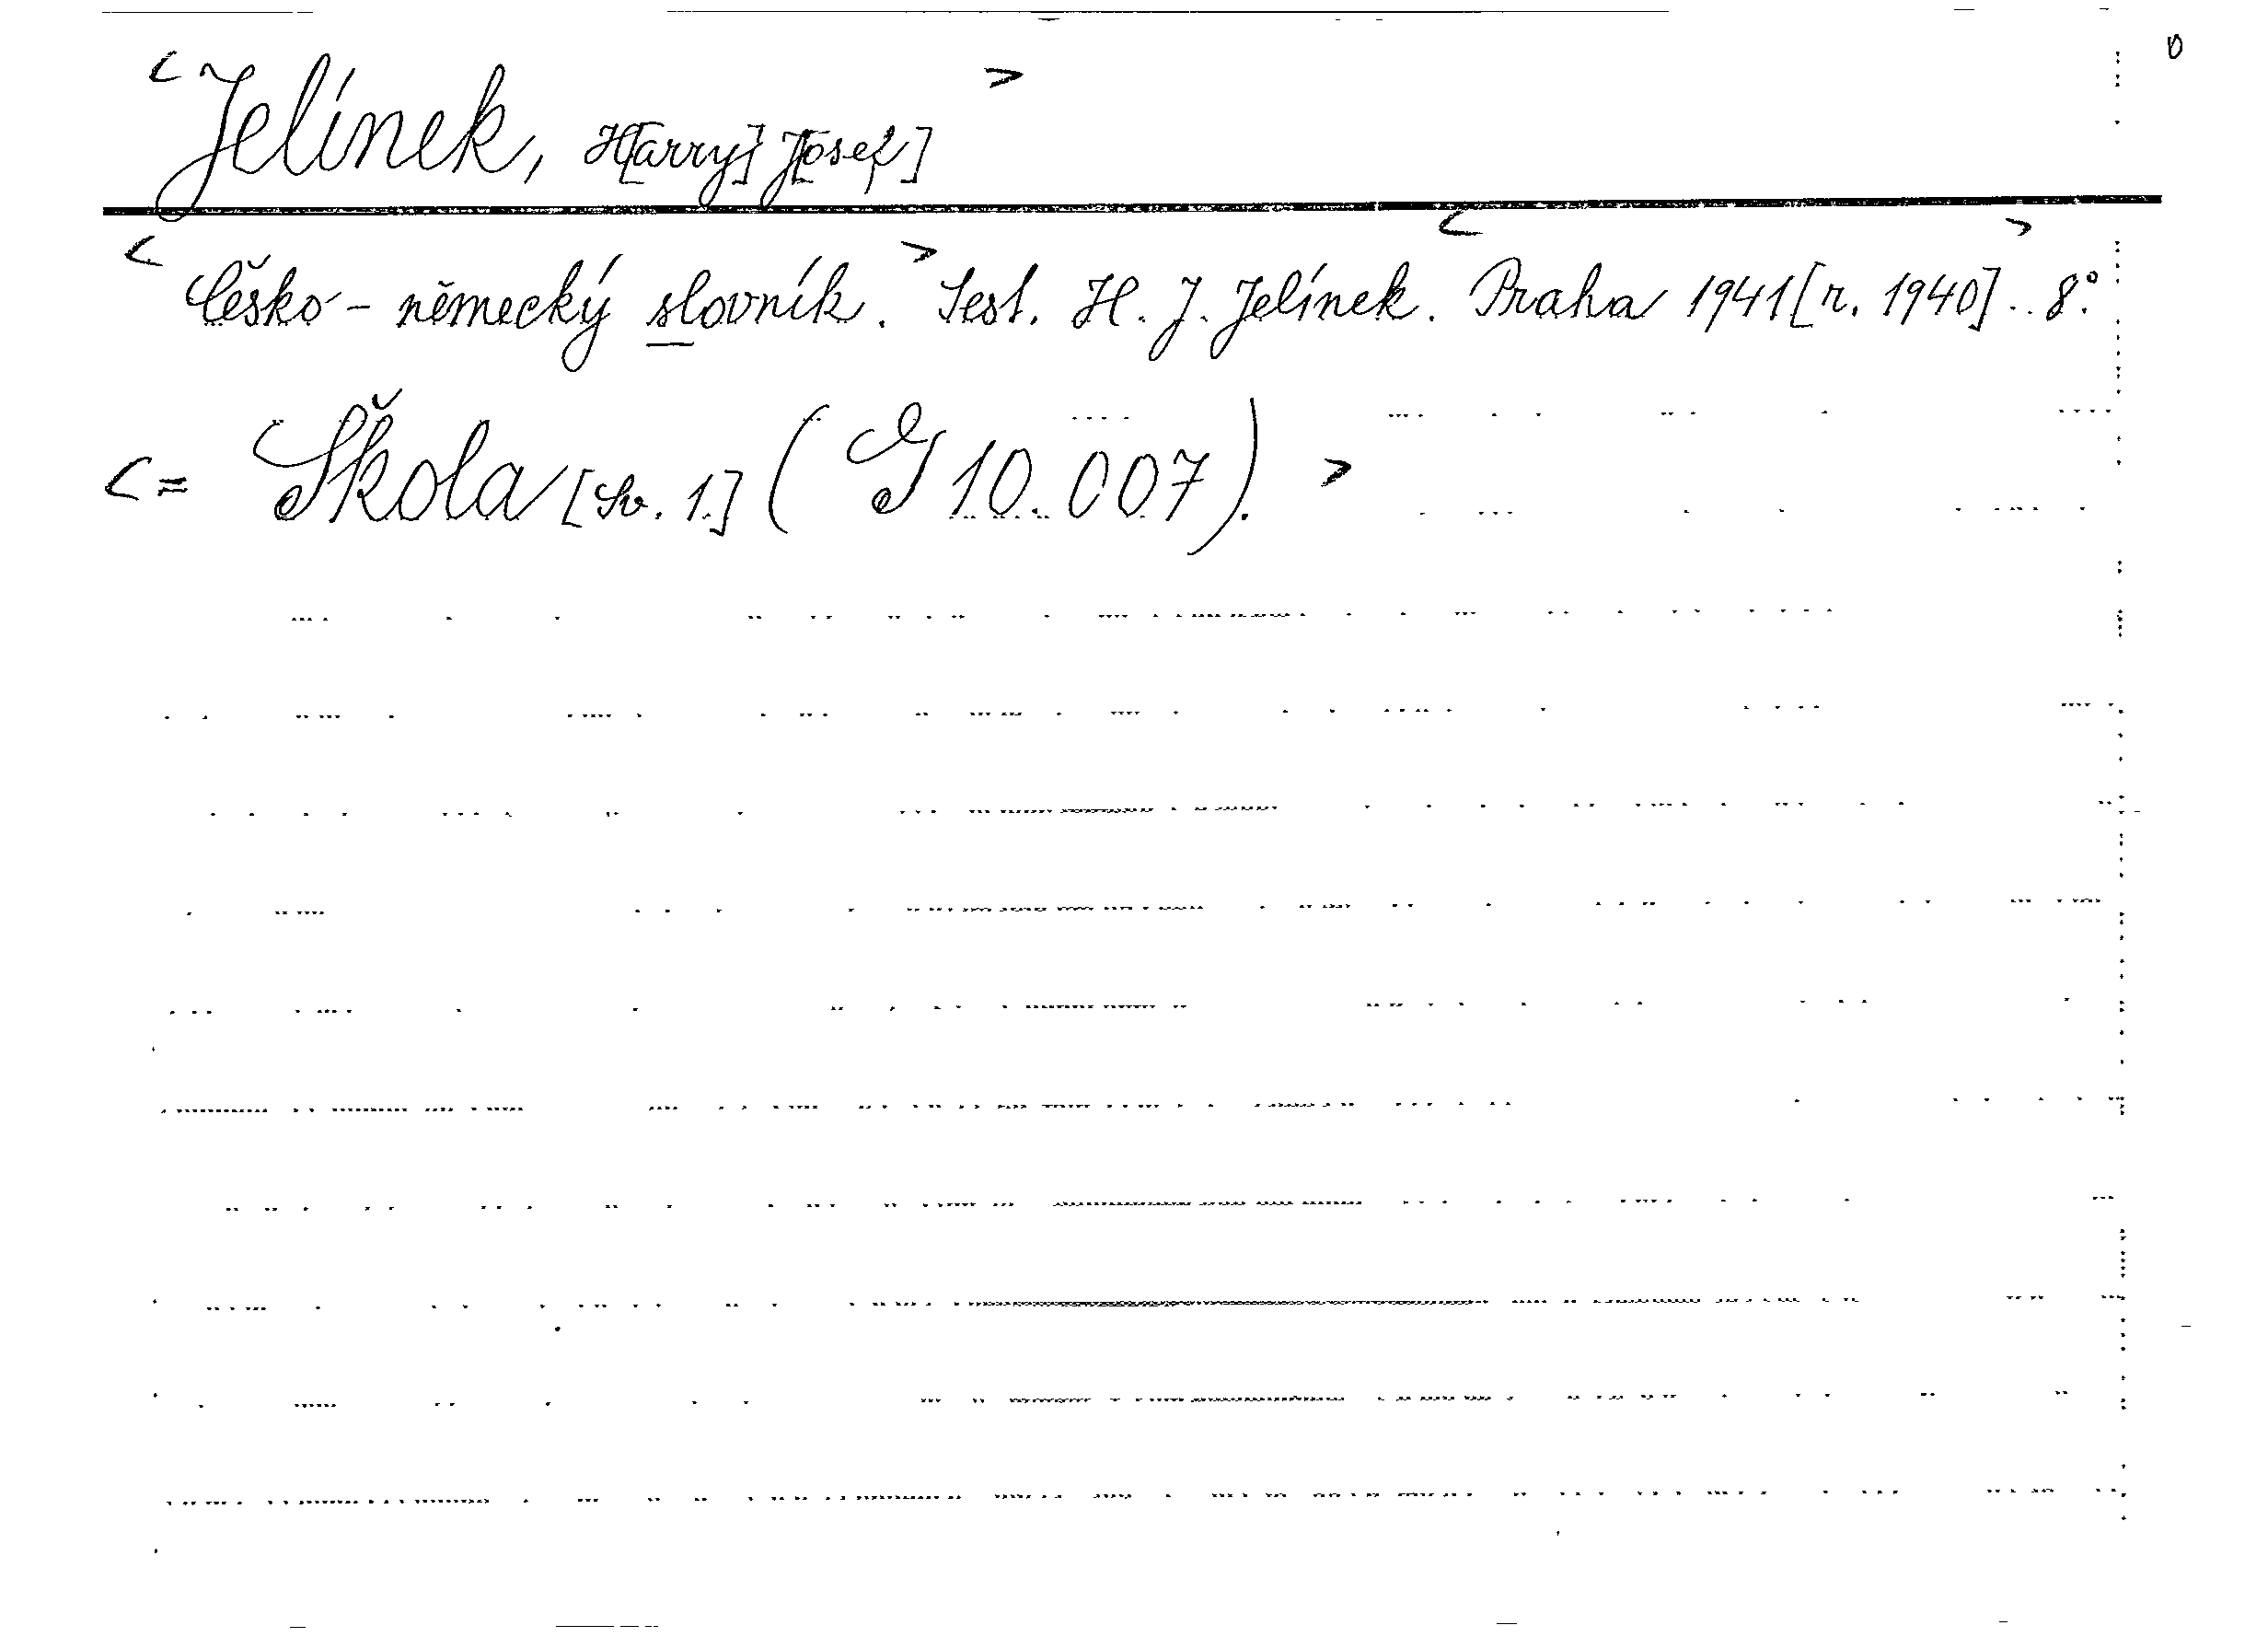 <Jelínek, H[arry] J[osef]>
<Česko-německý slovník.> Sest. H. J. Jelínek. <Praha 1941 [r. 1940].> 8°.
<= Škola [Sv. 1.] (G 10.007).>